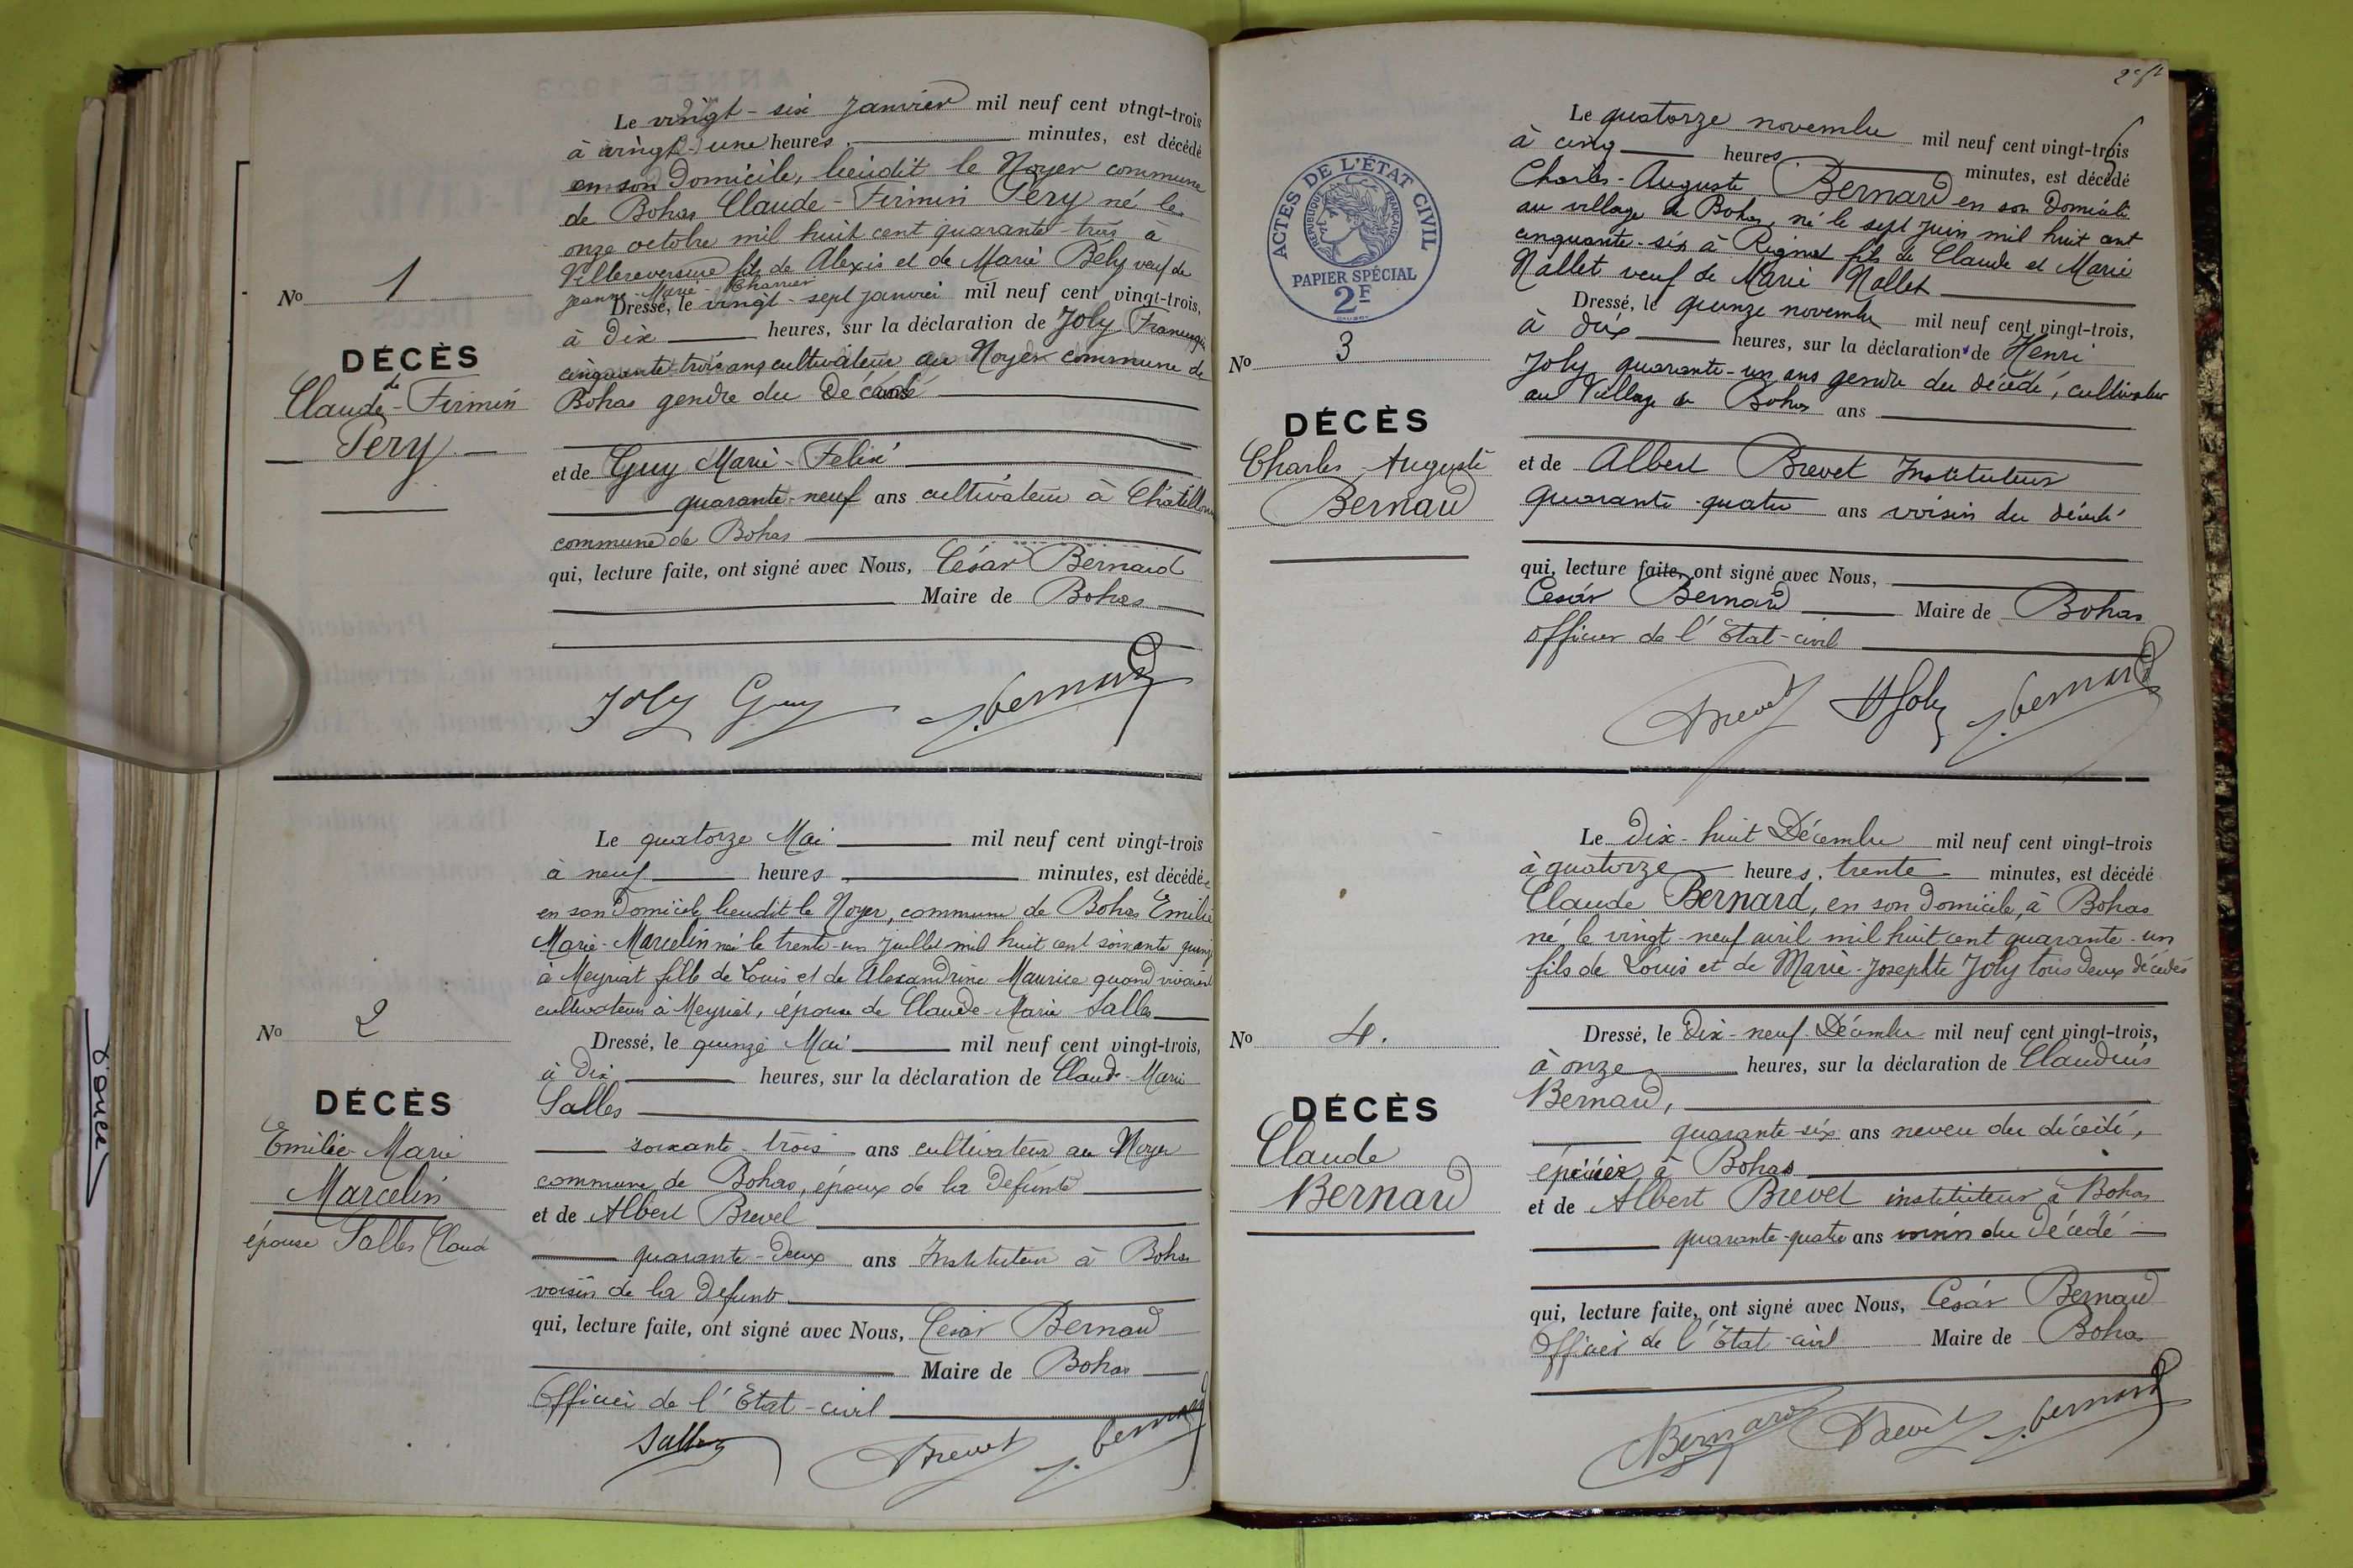 Le vingt-six Janvier mil neuf cent vingt-trois
à vingt-une heures minutes, est décédé
en son Domicile, lieudit le Noyer commune
de Bohas Claude-Firmin Pery né le
onze octobre mil huit cent quarante-trois à
Villereversure fils de Alexis et de Marie Bély veuf de
Jeanne-Marie-Charrier
Dressé, le vingt-sept janvier mil neuf cent vingt-trois,
à Dix heures, sur la déclaration de Joly
cinquante trois ans cultivateur au Noyer commune de
Bohas gendre du Décédé
et de Guy Marie-Felix
quarante-neuf ans cultivateur à Châtillon
commune de Bohas
qui, lecture faite, ont signé avec Nous, César Bernard
Maire de Bohas
Joly Guy J. Bernard
No 1
DÉCÈS
Claude-Firmin
Pery
Le quatorze Mai mil neuf cent vingt-trois
à neuf heures minutes, est décédée
en son Domicile lieudit le Noyer, commune de Bohas Emilie
Marie-Marcelin née le trente-un Juillet mil huit cent soixante quinze
à Meyriat fille de Louis et de Alexandrine Maurice quand vivaient
cultivateurs à Meyriat, épouse de Claude-Marie Salles
Dressé, le quinze Mai mil neuf cent vingt-trois,
à Dix heures, sur la déclaration de Claude-Marie
Salles
soixante-trois ans cultivateur au Noyer
commune de Bohas, époux de la Defunte
et de Albert Brevet
quarante-deux ans Instituteur à Bohas
voisin de la Defunte
qui, lecture faite, ont signé avec Nous, César Bernard
Maire de Bohas
Officier de l'Etat-civil
Salles Brevet J. Bernard
No 2
DÉCÈS
Emilie-Marie
Marcelin
épouse Salles Claude
ACTES DE L'ÉTAT CIVIL
RÉPUBLIQUE FRANÇAISE
PAPIER SPÉCIAL
2F
Le quatorze novembre mil neuf cent vingt-trois
à cinq heures minutes, est décédé
Charles-Auguste Bernard en son Domicile
au village de Bohas, né le sept juin mil huit cent
cinquante-six à Rignat fils de Claude et Marie
Nallet veuf de Marie Nallet
Dressé, le quinze novembre mil neuf cent vingt-trois,
à dix heures, sur la déclaration de Henri
Joly quarante-un ans gendre du décédé, cultivateur
au Village de Bohas ans
et de Albert Brevet Instituteur
quarante-quatre ans voisin du décédé
qui, lecture faite, ont signé avec Nous,
César Bernard Maire de Bohas
Officier de l'Etat-civil
Brevet H Joly J. Bernard
No 3
DÉCÈS
Charles-Auguste
Bernard
Le Dix-huit Décembre mil neuf cent vingt-trois
à quatorze heures, trente minutes, est décédé
Claude Bernard, en son Domicile, à Bohas
né le vingt-neuf avril mil huit cent quarante-un
fils de Louis et de Marie-Josephte Joly tous deux décédés
Dressé, le Dix-neuf Décembre mil neuf cent vingt-trois,
à onze heures, sur la déclaration de Claudius
Bernard,
quarante-six ans neveu du décédé,
épicier à Bohas
et de Albert Brevet instituteur à Bohas
quarante-quatre ans voisin du Décédé
qui, lecture faite, ont signé avec Nous, César Bernard
Officier de l'Etat-civil Maire de Bohas
Bernard Brevet J. Bernard
No 4.
DÉCÈS
Claude
Bernard